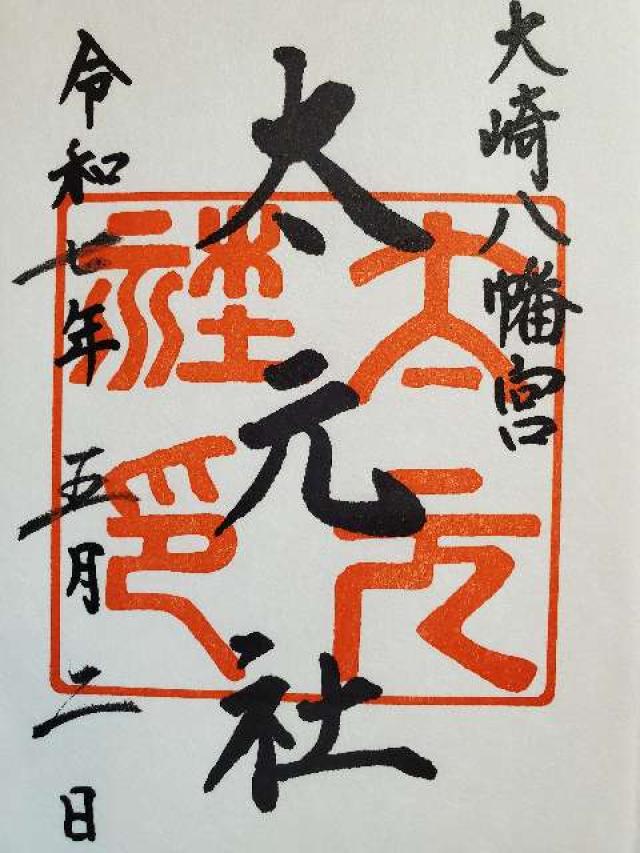 大崎八幡宮
太元社
令和七年 五月二日
太元社印